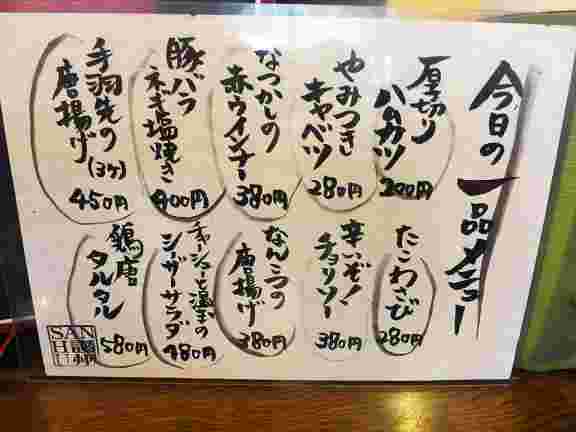 今日の一品メニュー
厚切り
ハムカツ
200円
やみつき
キャベツ
280円
なつかしの
赤ウインナー
380円
豚バラ
ネギ塩焼き
400円
手羽先の
唐揚げ
(3ヶ)
450円
たこわさび
280円
辛いぞ!
チョリソー
380円
なんこつの
唐揚げ
380円
チャーシューと温玉の
シーザーサラダ
480円
鶏唐
タルタル
580円
SAN